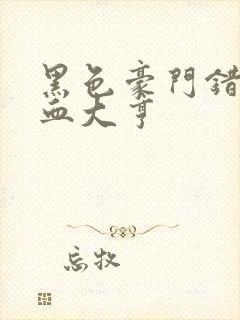 黑色豪門錯
血大亨
忘牧